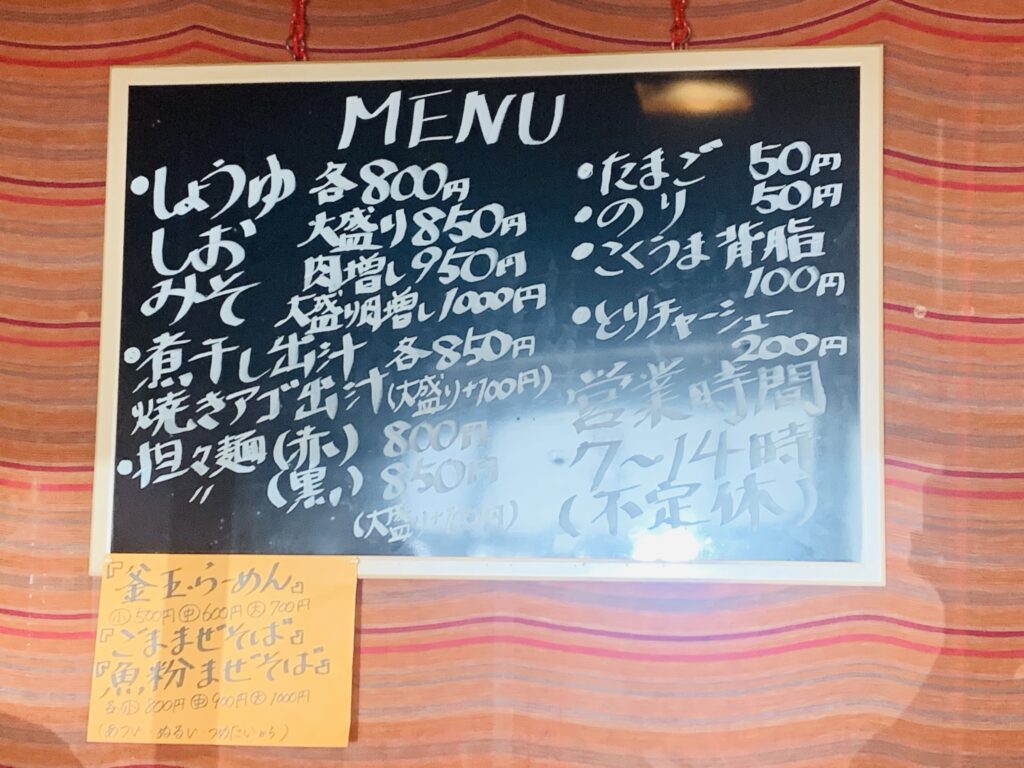 MENU
・しょうゆ 各800円
しお 大盛り850円
みそ 肉増し950円
大盛り肉増し1000円
・煮干し出汁 各850円
焼きアゴ出汁(大盛り+100円)
・担々麺(赤) 800円
〃 (黒) 850円
(大盛り+100円)
・たまご 50円
・のり 50円
・こくうま背脂
100円
・とりチャーシュー
200円
営業時間
7〜14時
(不定休)
『釜玉らーめん』
小500円 中600円 大700円
『ごままぜそば』
『魚粉まぜそば』
各小800円 中900円 大1000円
(あつい ぬるい つめたいから)